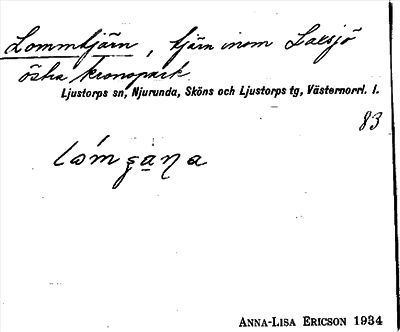 Lommtjärn, tjärn inom Laxsjö
östra kronopark.
Ljustorps sn, Njurunda, Sköns och Ljustorps tg, Västernorrl. l.
83
ANNA-LISA ERICSON 1934